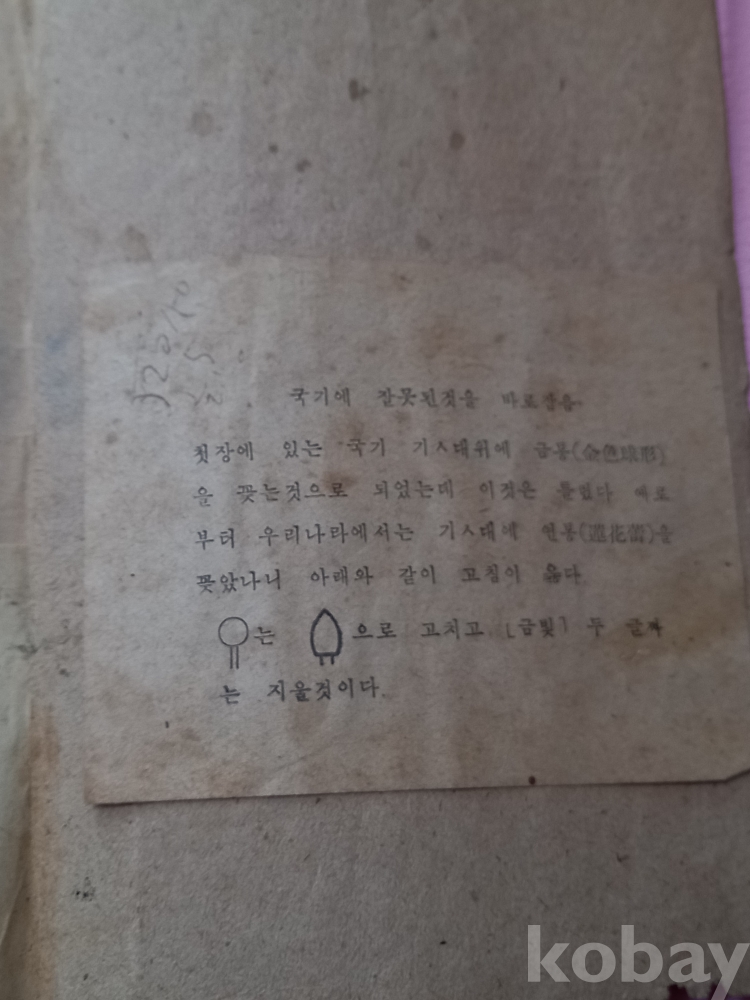 국기에 잘못된것을 바로잡음
첫장에 있는 국기 기ㅅ대위에 금봉(金色球形)
을 꽂는것으로 되었는데 이것은 틀렸다 예로
부터 우리나라에서는 기ㅅ대에 연봉(蓮花蕾)을
꽂았나니 아래와 같이 고침이 옳다
는 으로 고치고 [금빛] 두 글짜
는 지울것이다.
kobay